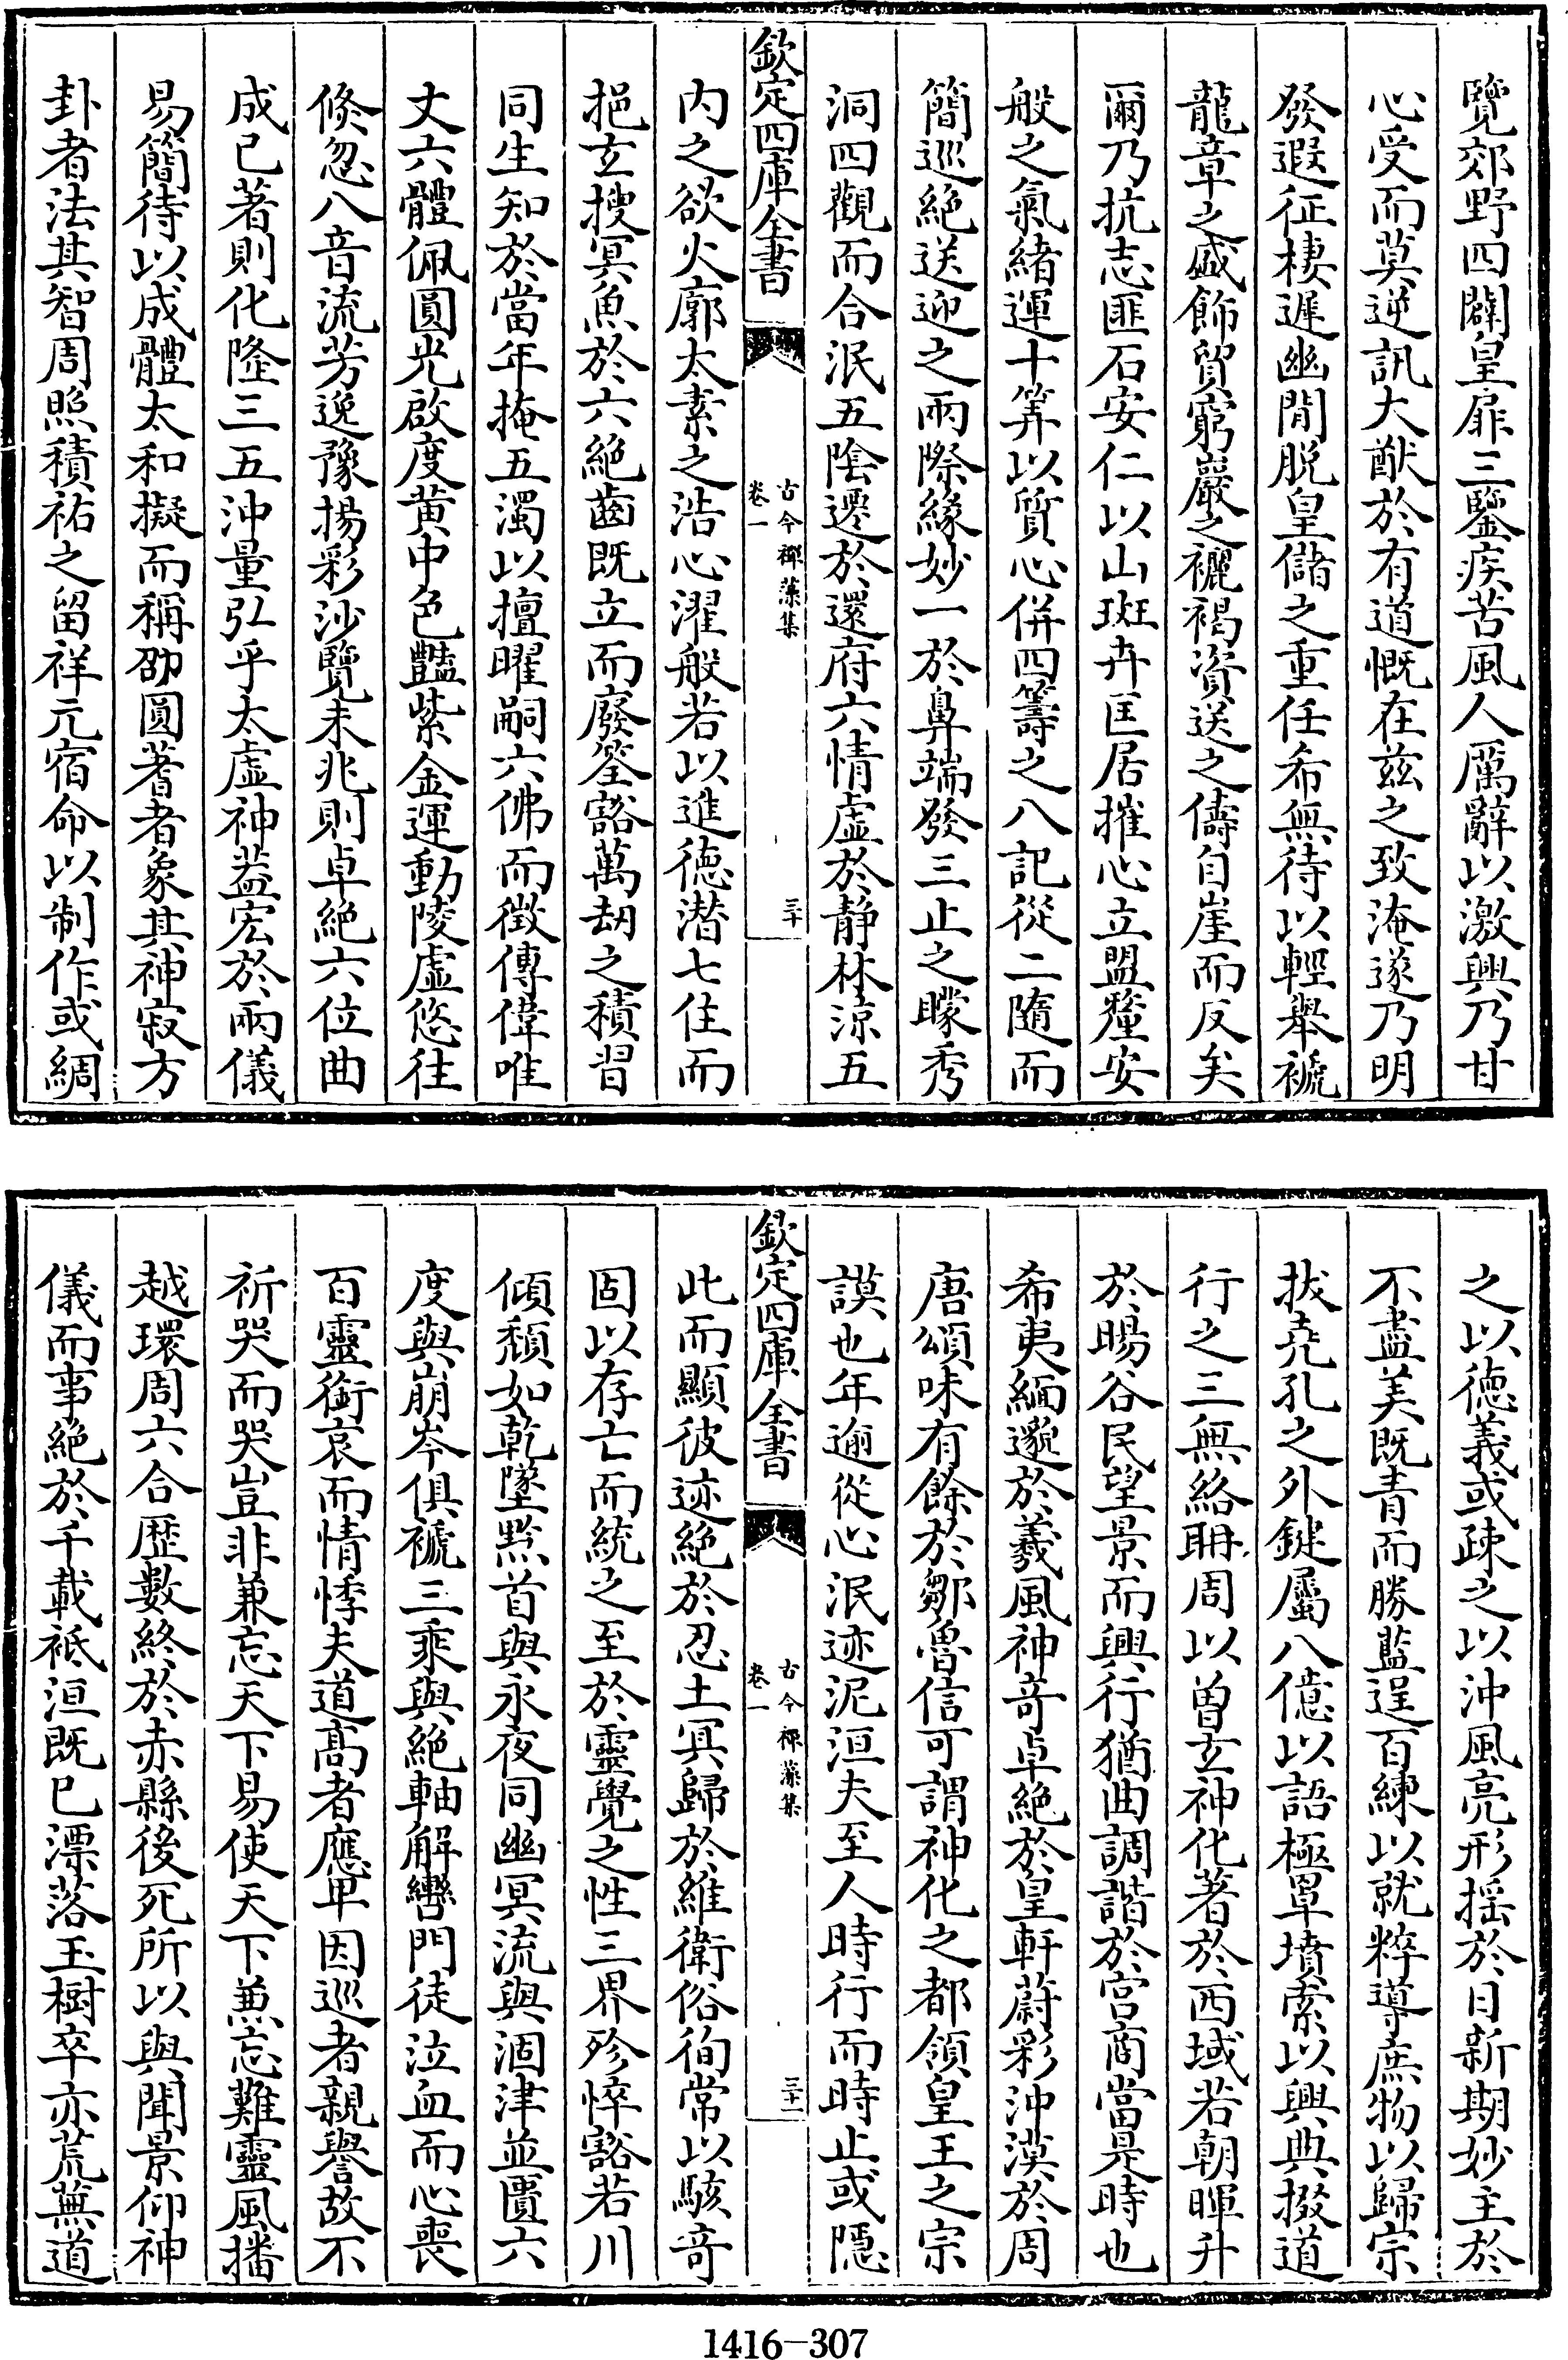 覽郊野四闢皇扉三鑒疾苦風人厲辭以激興乃甘
心受而莫逆訊大猷於有道慨在兹之致淹遂乃明
發遐征棲遲幽閒脱皇儲之重任希無待以輕舉褫
龍章之盛飾貿窮巖之襬褐資送之儔自崖而反矣
爾乃抗志匪石安仁以山斑卉匡居摧心立盟釐安
般之氣緒運十筭以質心併四籌之八記從二隨而
簡巡絶送迎之兩際緣妙一於鼻端發三止之矇秀
洞四觀而合泯五陰遷於還府六情虛於静林涼五
欽定四庫全書
古今禪藻集
卷一
三十
内之欲火廓太素之浩心濯般若以進德潛七住而
挹玄搜冥魚於六絶齒既立而廢筌豁萬劫之積習
同生知於當年掩五濁以擅曜嗣六佛而徵傳偉唯
丈六體佩圓光啟度黄中色豔紫金運動陵虛悠往
倐忽八音流芳逸豫揚彩沙覽未兆則卓絶六位曲
成已著則化隆三五沖量弘乎太虛神葢宏於兩儀
易簡待以成體太和擬而稱卲圓蓍者象其神寂方
卦者法其智周照積祐之留祥元宿命以制作或綢
之以德義或疎之以沖風亮形揺於日新期妙主於
不盡美既青而勝藍逞百練以就粹導庶物以歸宗
拔堯孔之外鍵屬八億以語極罩墳索以興典掇道
行之三無絡聃周以曽玄神化著於西域若朝暉升
於暘谷民望景而興行猶曲調諧於宫商當是時也
希夷緬邈於羲風神奇卓絶於皇軒蔚彩沖漠於周
唐頌味有餘於鄒魯信可謂神化之都領皇王之宗
謨也年逾從心泯迹泥洹夫至人時行而時止或隱
欽定四庫全書
古今禪藻集
卷一
三十一
此而顯彼迹絶於忍土冥歸於維衛俗徇常以駭奇
固以存亡而統之至於靈覺之性三界殄悴豁若川
傾頽如乾墜黔首與永夜同幽冥流與涸津並匱六
度與崩岑俱褫三乘與絶軸解轡門徒泣血而心喪
百靈銜哀而情悸夫道髙者應卑因巡者親譽故不
祈哭而哭豈非兼忘天下易使天下兼忘難靈風播
越環周六合歴數終於赤縣後死所以與聞景仰神
儀而事絶於千載袛洹既已漂落玉樹卒亦荒蕪道
1416-307